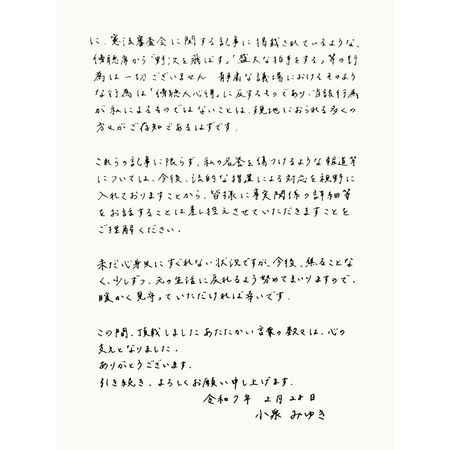 に、憲法審査会に関する記事に掲載されているような、
傍聴席から「野次を飛ばす」「盛大な拍手をする」等の行
為は一切ございません。静粛な議場におけるそのよう
な行為は「傍聴人心得」に反するものであり、当該行為
が私によるものではないことは、現地におられる多くの
方々がご存知であるはずです。
これらの記事に限らず、私の名誉を傷つけるような報道等
については、今後、法的な措置による対応を視野に
入れておりますことから、皆様に事実関係の詳細等
をお話することは差し控えさせていただきますことを
ご理解ください。
未だ心身共にすぐれない状況ですが、今後、焦ることな
く、少しずつ、元の生活に戻れるよう努めてまいりますので、
暖かく見守っていただければ幸いです。
この間、頂戴しましたあたたかい言葉の数々は、心の
支えとなりました。
ありがとうございます。
引き続き、よろしくお願い申し上げます。
令和7年 2月28日
小泉 みゆき